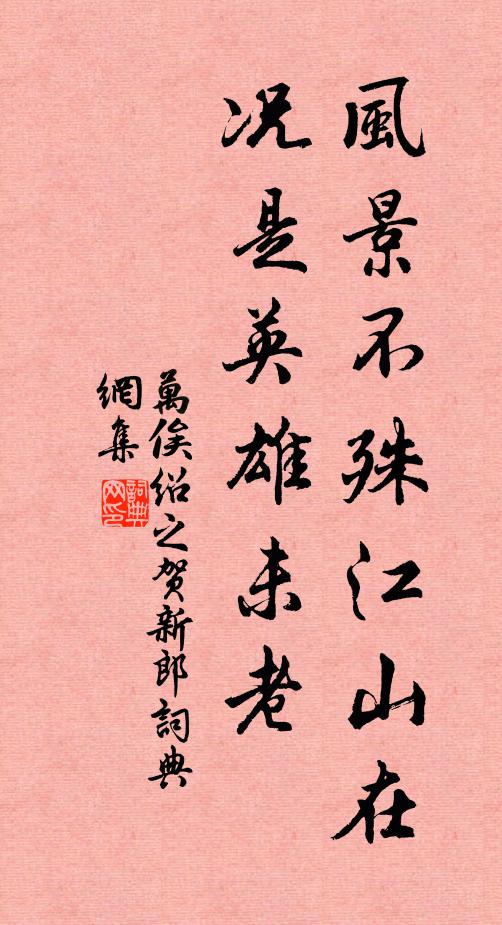 風景不殊江山在
况是英雄未老
萬俟绍之贺新郎詞典
網集
詞典
网印